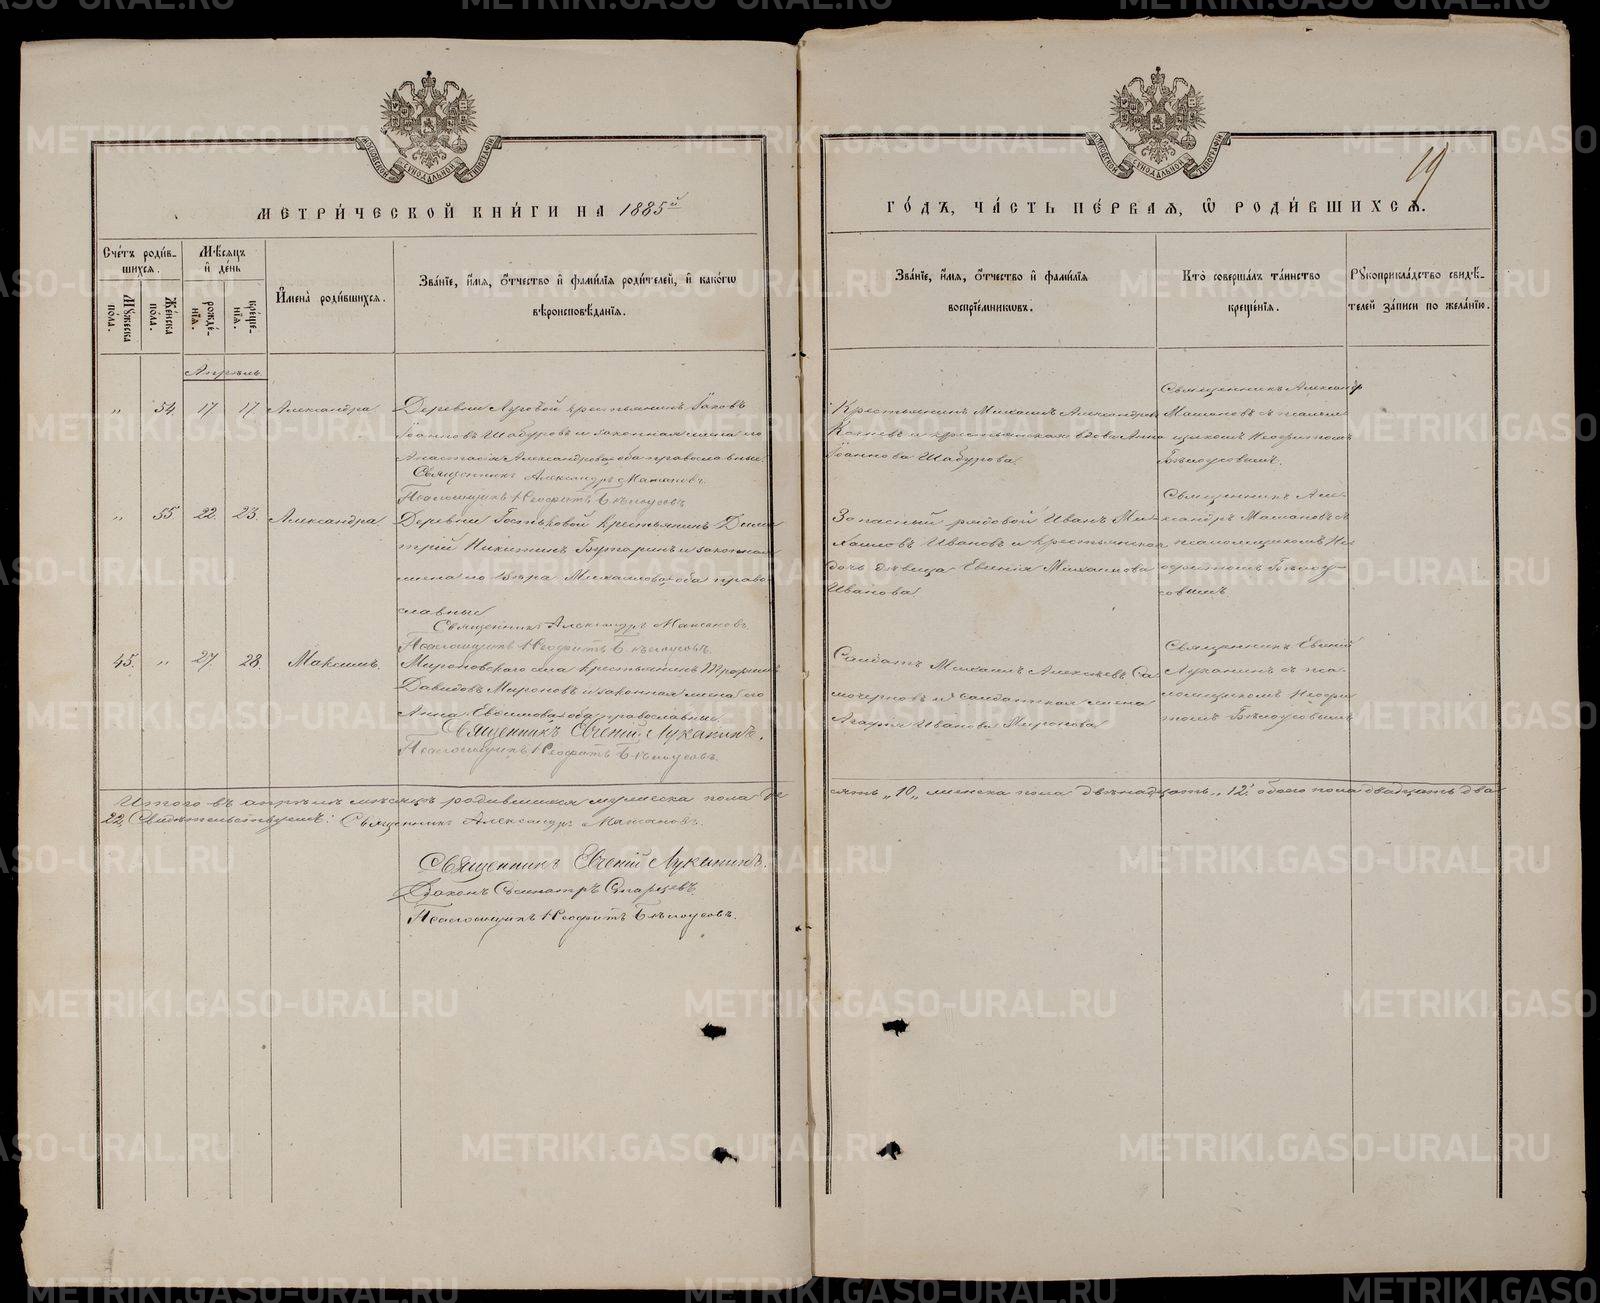 МЕТРИ́ЧЕСКОЙ КНИ́ГИ НА 1885й
Сче́тъ роди́в-
шихсѧ.
Му́жеска
по́ла.
Же́нска
пола.
Мѣ́сѧцъ
и҆ де́нь
рожде́-
нїѧ.
креще́-
нїѧ.
И҆мена̀ роди́вшихсѧ.
Зва́нїе, и҆́мѧ, ѻ҆́тчество и҆ фами́лїѧ роди́телей, и҆ како́гѡ
вѣроисповѣ́данїѧ.
Апрѣль.
„ 54. 17 17 Александра
Деревни Луговой крестьянинъ Іаковъ
Іоанновъ Шабуровъ и законная жена его
Анастасія Александрова, оба православные.
Священникъ Александръ Мажановъ.
Псаломщикъ Неофитъ Бѣлоусовъ
„ 55 22. 23. Александра
Деревни Гостьковой крестьянинъ Дими-
трій Никитинъ Бутаринъ и законная
жена его Вѣра Михаилова, оба право-
славные
Священникъ Александръ Мажановъ.
Псаломщикъ Неофитъ Бѣлоусовъ.
45. „ 27. 28. Максимъ.
Мироновскаго села крестьянинъ Трофимъ
Давидовъ Мироновъ и законная жена его
Анна Евѳимова, оба православные.
Священникъ Евгеній Луканинъ.
Псаломщикъ Неофитъ Бѣлоусовъ.
Итого въ апрѣлѣ мѣсяцѣ родившихся мужеска пола де-
22, Свидѣтельствуемъ: Священникъ Александръ Мажановъ.
Священникъ Евгеній Луканинъ.
Псаломщикъ Неофитъ Бѣлоусовъ.
19
ГО́ДЪ, ЧА́СТЬ ПЕ́РВАѦ, Ѽ РОДИ́ВШИХСѦ.
Зва́нїе, и҆́мѧ, ѻ҆́тчество и҆ фами́лїѧ
воспрїе́мниковъ.
Кто̀ соверша́лъ та́инство
креще́нїѧ.
Рꙋкоприкла́дство свидѣ́-
телей за́писи по жела́нїю.
Крестьянинъ Михаилъ Александровъ
Коптевъ и крестьянская вдова Анна
Іоаннова Шабурова.
Священникъ Александръ
Мажановъ съ псалом-
щикомъ Неофитомъ
Бѣлоусовымъ.
Запасный рядовой Иванъ Ми-
хаиловъ Ивановъ и крестьянская
дочь дѣвица Евгенія Михаилова
Иванова.
Священникъ Але-
ксандръ Мажановъ съ
псаломщикомъ Не-
офитомъ Бѣлоу-
совымъ.
Солдатъ Михаилъ Алексѣевъ Са-
мочерновъ и солдатская жена
Агафья Иванова Миронова
Священникъ Евгеній
Луканинъ съ пса-
ломщикомъ Неофи-
томъ Бѣлоусовымъ
сять „10„ женска пола двѣнадцать „12„ обоего пола двадцать два